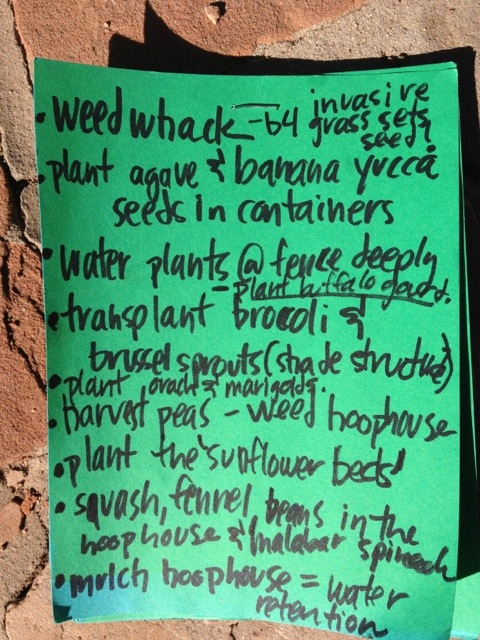 • weedwhack - b4 invasive
grass sets
seed
• plant agave & banana yucca
seeds in containers
• water plants @ fence deeply
- plant buffalo gourd.
• transplant brocoli &
brussel sprouts (shade structure)
• plant orach & marigolds.
• harvest peas - weed hoophouse
• plant the "sunflower beds"
• squash, fennel, beans in the
hoophouse & malabar spinach
• mulch hoophouse = water
retention